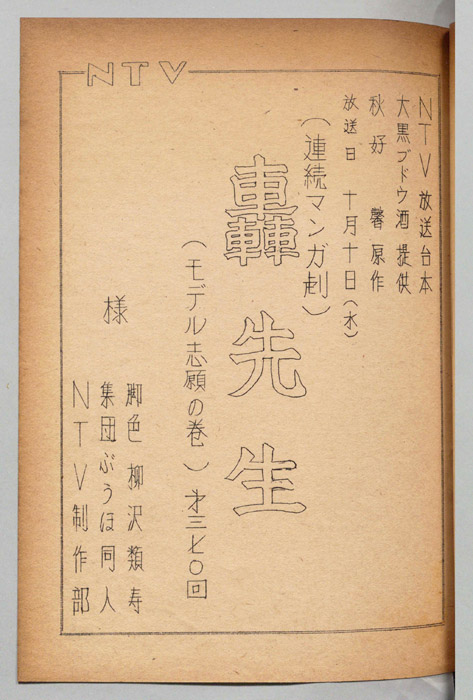 NTV
NTV放送台本
大黒ブドウ酒 提供
秋好 馨 原作
放送日 十月十日(水)
(連続マンガ劇)
轟先生
(モデル志願の巻) 才三七〇回
様
脚色 柳沢類寿
集団ぶうほ同人
NTV制作部